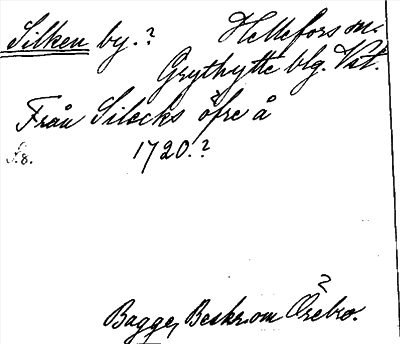 Silken by.? Hellefors sn.
Grythytte blg. Vst.
Från Silocks öfre å
1720.?
S. 8.
Bagge, Beskr. om Örebro.